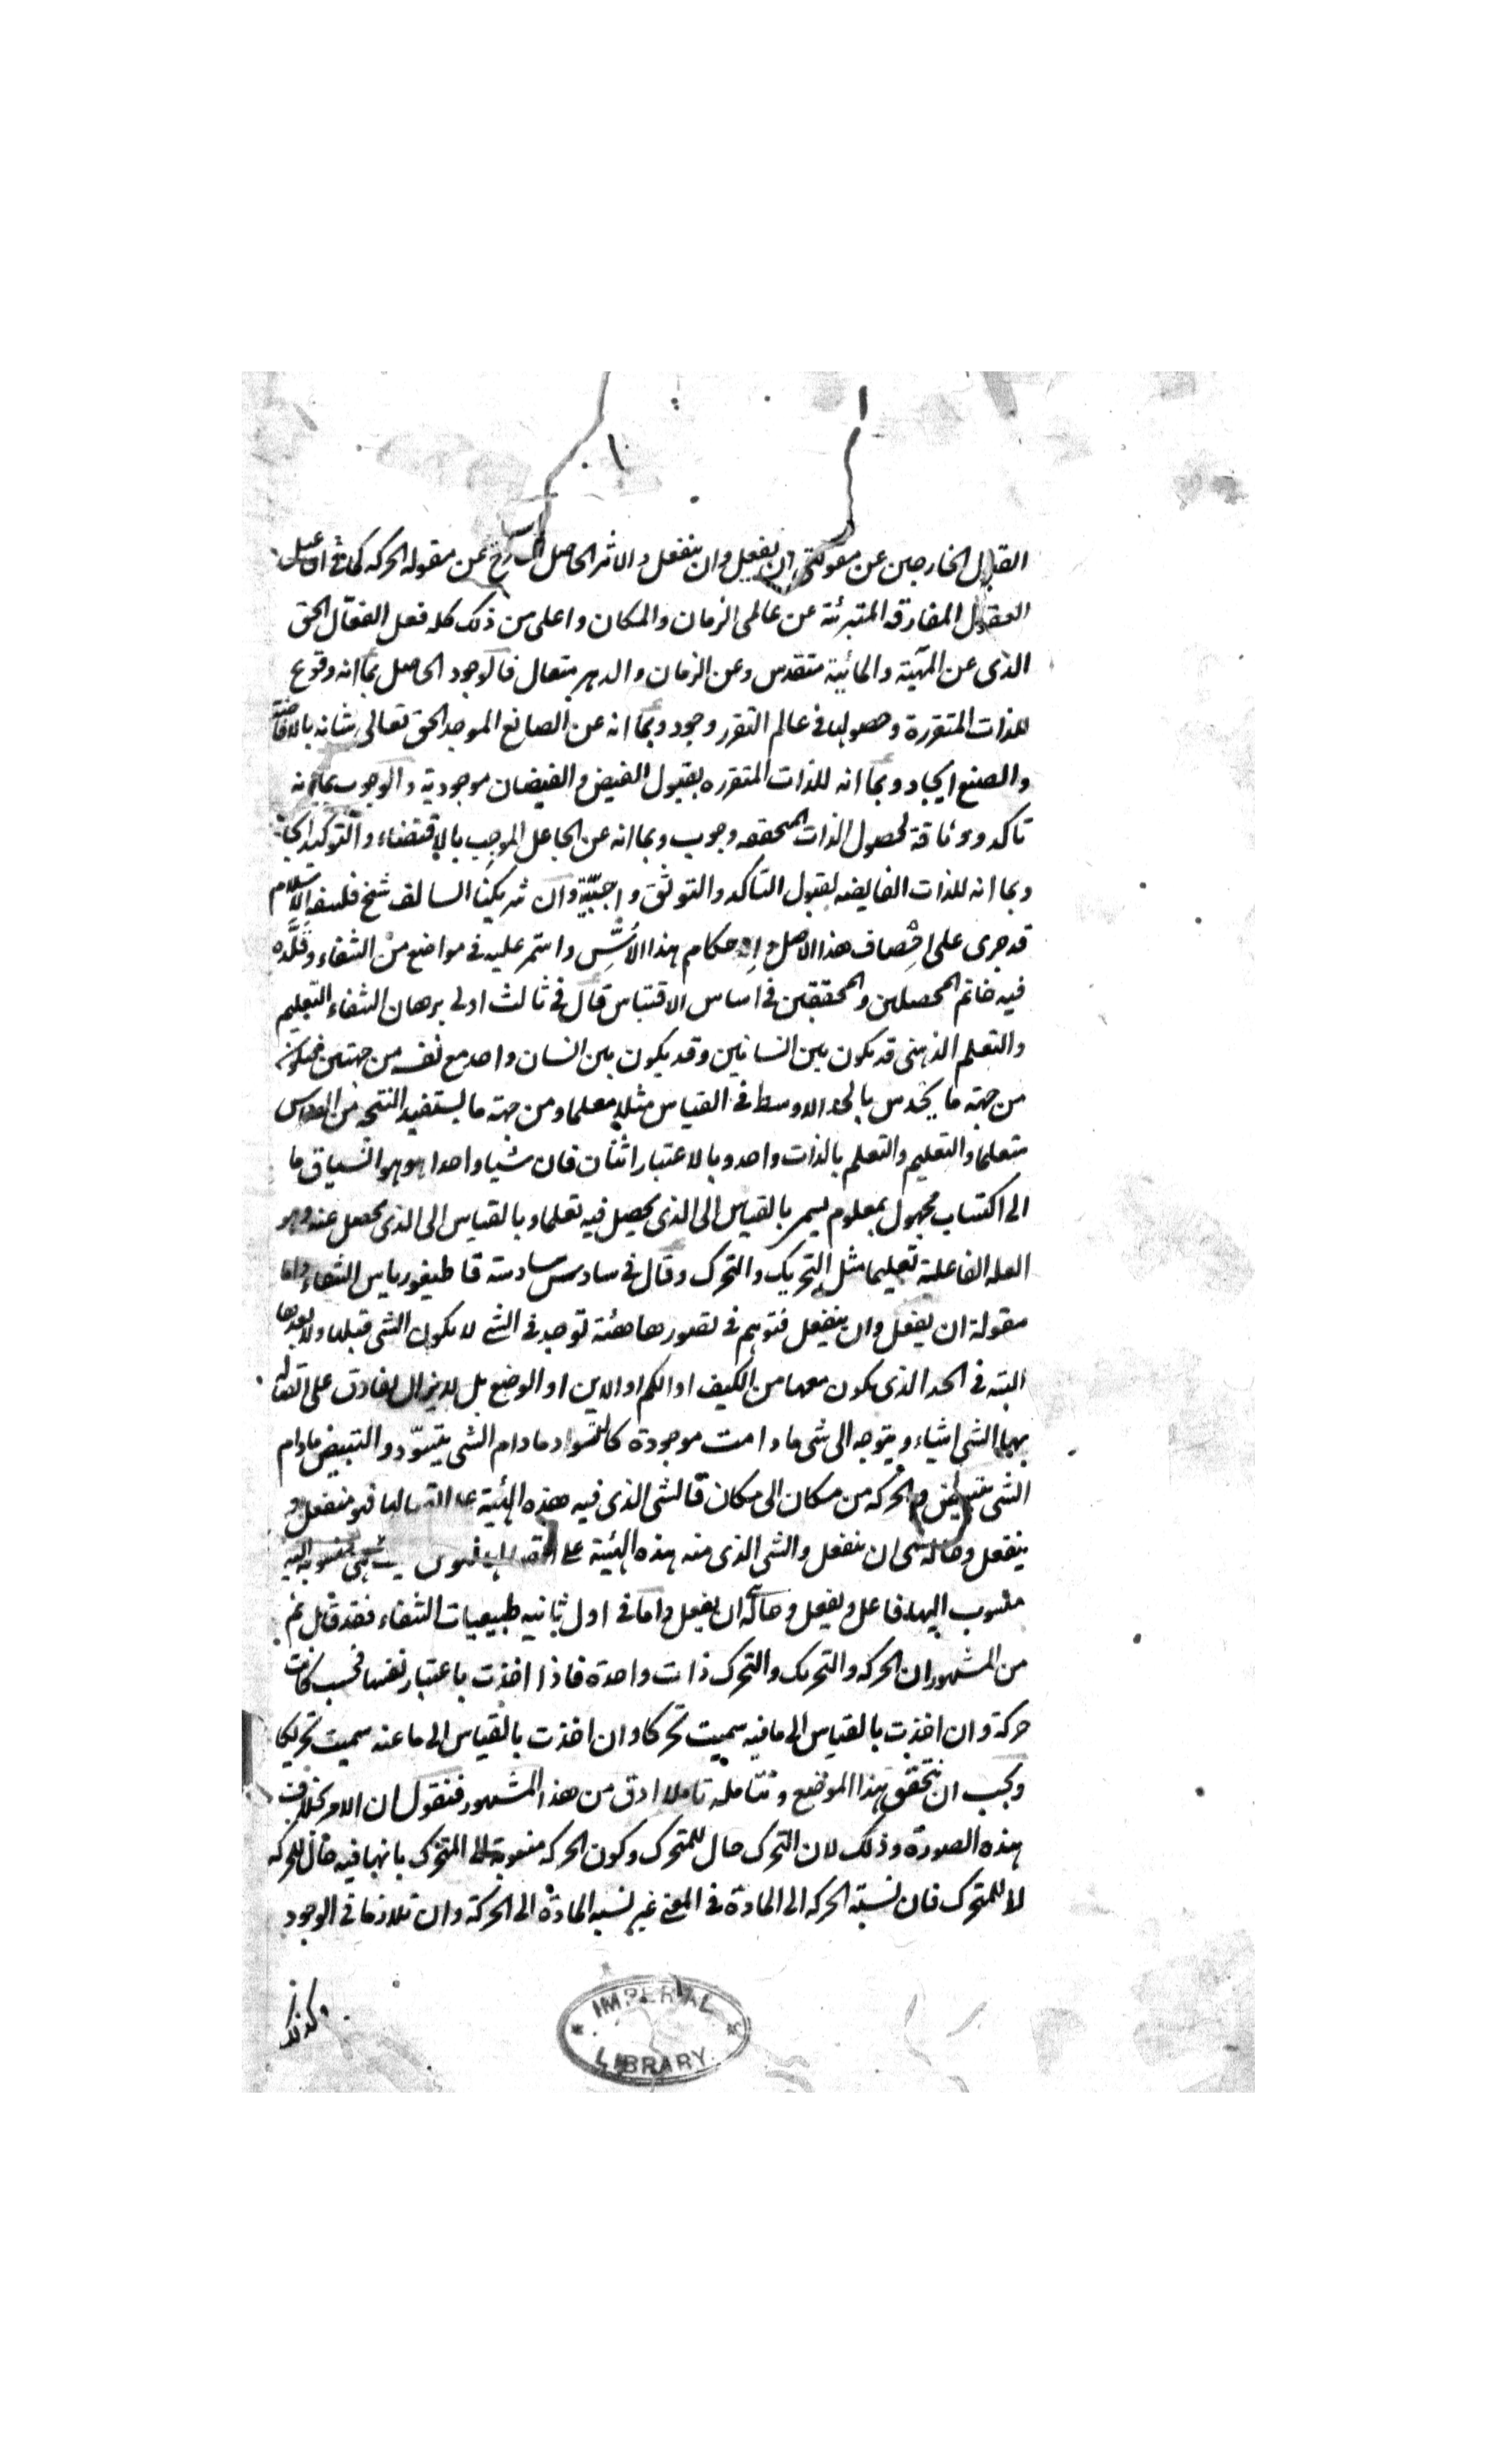 القبول الخارجين عن مقولتى ان يفعل وان ينفعل والاثر الحاصل الخارج عن مقولة الحركه كما فى افاعيل
العقول المفارقه المتبرئة عن عالمى الزمان والمكان واعلى من ذلك كله فعل الفعّال الحق
الذى عن المهّية والمائية متقدس وعن الزمان والدهر متعال فالوجود الحاصل بما انه وقوع
للذات المتقررة وحصولها فى عالم التقرر وجود وبما انه عن الصانع الموجد الحق تعالى شانه بالافاضة
والصنع ايجاد وبما انه للذات المتقرره بقبول الفيض والفيضان موجودية والوجوب بما انه
تاكد ووثاقة لحصول الذات المحققه وجوب وبما انه عن الجاعل الموجب بالاقتضاء والتوكيد ايجاب
وبما انه للذات الفايضه بقبول التاكد والتوثق واجبيّة وان شريكنا السالف شيخ فلسفة الاسلام
قد جرى على احصاف هذا الاصل واحكام هذا الاُسّ واستمر عليه فى مواضع من الشفاء وقلّده
فيه خاتم المحصلين والمحققين فى اساس الاقتباس قال فى ثالث اولى برهان الشفاء التعليم
والتعلم الذهنى قد يكون بين انسانين وقد يكون بين انسان واحد مع نفسه من جهتين فيكون
من جهة ما يحدس بالحد الاوسط فى القياس مثلا معلما ومن جهة ما يستفيد النتيجه من القياس
متعلما والتعليم والتعلم بالذات واحد وبالاعتبار اثنان فان شيئا واحدا هو هو انسياق ما
الى اكتساب مجهول بمعلوم يسمى بالقياس الى الذى يحصل فيه تعلما وبالقياس الى الذى يحصل عنه وهو
العله الفاعلية تعليما مثل التحريك والتحرك وقال فى سادس سادسة قاطيغورياس الشفاء واما
مقولة ان يفعل وان ينفعل فتوهم فى تصورها هيئة توجد فى الشى لا يكون الشى قبلها ولا بعدها
البته فى الحد الذى يكون معها من الكيف او الكم او الاين او الوضع بل لا يزال يفارق على اتصال
بها الشى اشياء ويتوجه الى شى ما دامت موجودة كالتسود ما دام الشى يتسوّد والتبيض مادام
الشى يتبيض والحركه من مكان الى مكان فالشى الذى فيه هذه الهيئة على اتصالها فهو منفعل و
ينفعل وحاله هى ان ينفعل والشى الذى منه هذه الهيئة على اتصالها فهو من حيث هى منسوبة اليه
منسوب اليها فاعل ويفعل وحاله ان يفعل واما فى اول ثانيه طبيعيات الشفاء فقد قال ثم
من المشهور ان الحركه والتحريك والتحرك ذات واحدة فاذا اخذت باعتبار نفسها فحسب كانت
حركة وان اخذت بالقياس الى ما فيه سميت تحركا وان اخذت بالقياس الى ما عنه سميت تحريكا
ويجب ان نتحقق هذا الموضع ونتامله تاملا ادق من هذا المشهور فنقول ان الامر بخلاف
هذه الصورة وذلك لان التحرك حال للمتحرك وكون الحركه منسوبة الى المتحرك بانها فيه حال للحركه
لا للمتحرك فان نسبة الحركه الى المادة فى المعنى غير نسبه المادة الى الحركة وان تلازما فى الوجود
وكذلك
IMPERIAL
LIBRARY